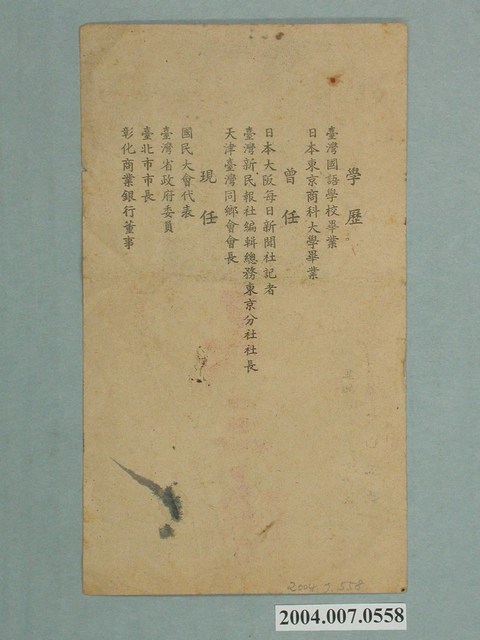 學歷
臺灣國語學校畢業
日本東京商科大學畢業
曾任
日本大阪每日新聞社記者
臺灣新民報社編輯總務東京分社社長
天津臺灣同鄉會會長
現任
國民大會代表
臺灣省政府委員
臺北市市長
彰化商業銀行董事
2004.7.558
2004.007.0558